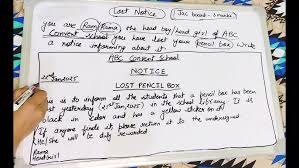 Lost Notice
Jac board - 5 marks
you are Ram/Rama the head boy/head girl of ABC
Convent school you have lost your pencil box. Write
a notice informing about it
ABC Convent School
NOTICE
22nd Jan 2025
LOST PENCIL BOX
This is to inform all the students that a pencil box has been
lost yesterday (21st Jan 2025) in the school library. It is
black in color and has a yellow sticker on it
If anyone finds it please return it to the undersigned
He/she will be duly rewarded
Rama
Head Girl